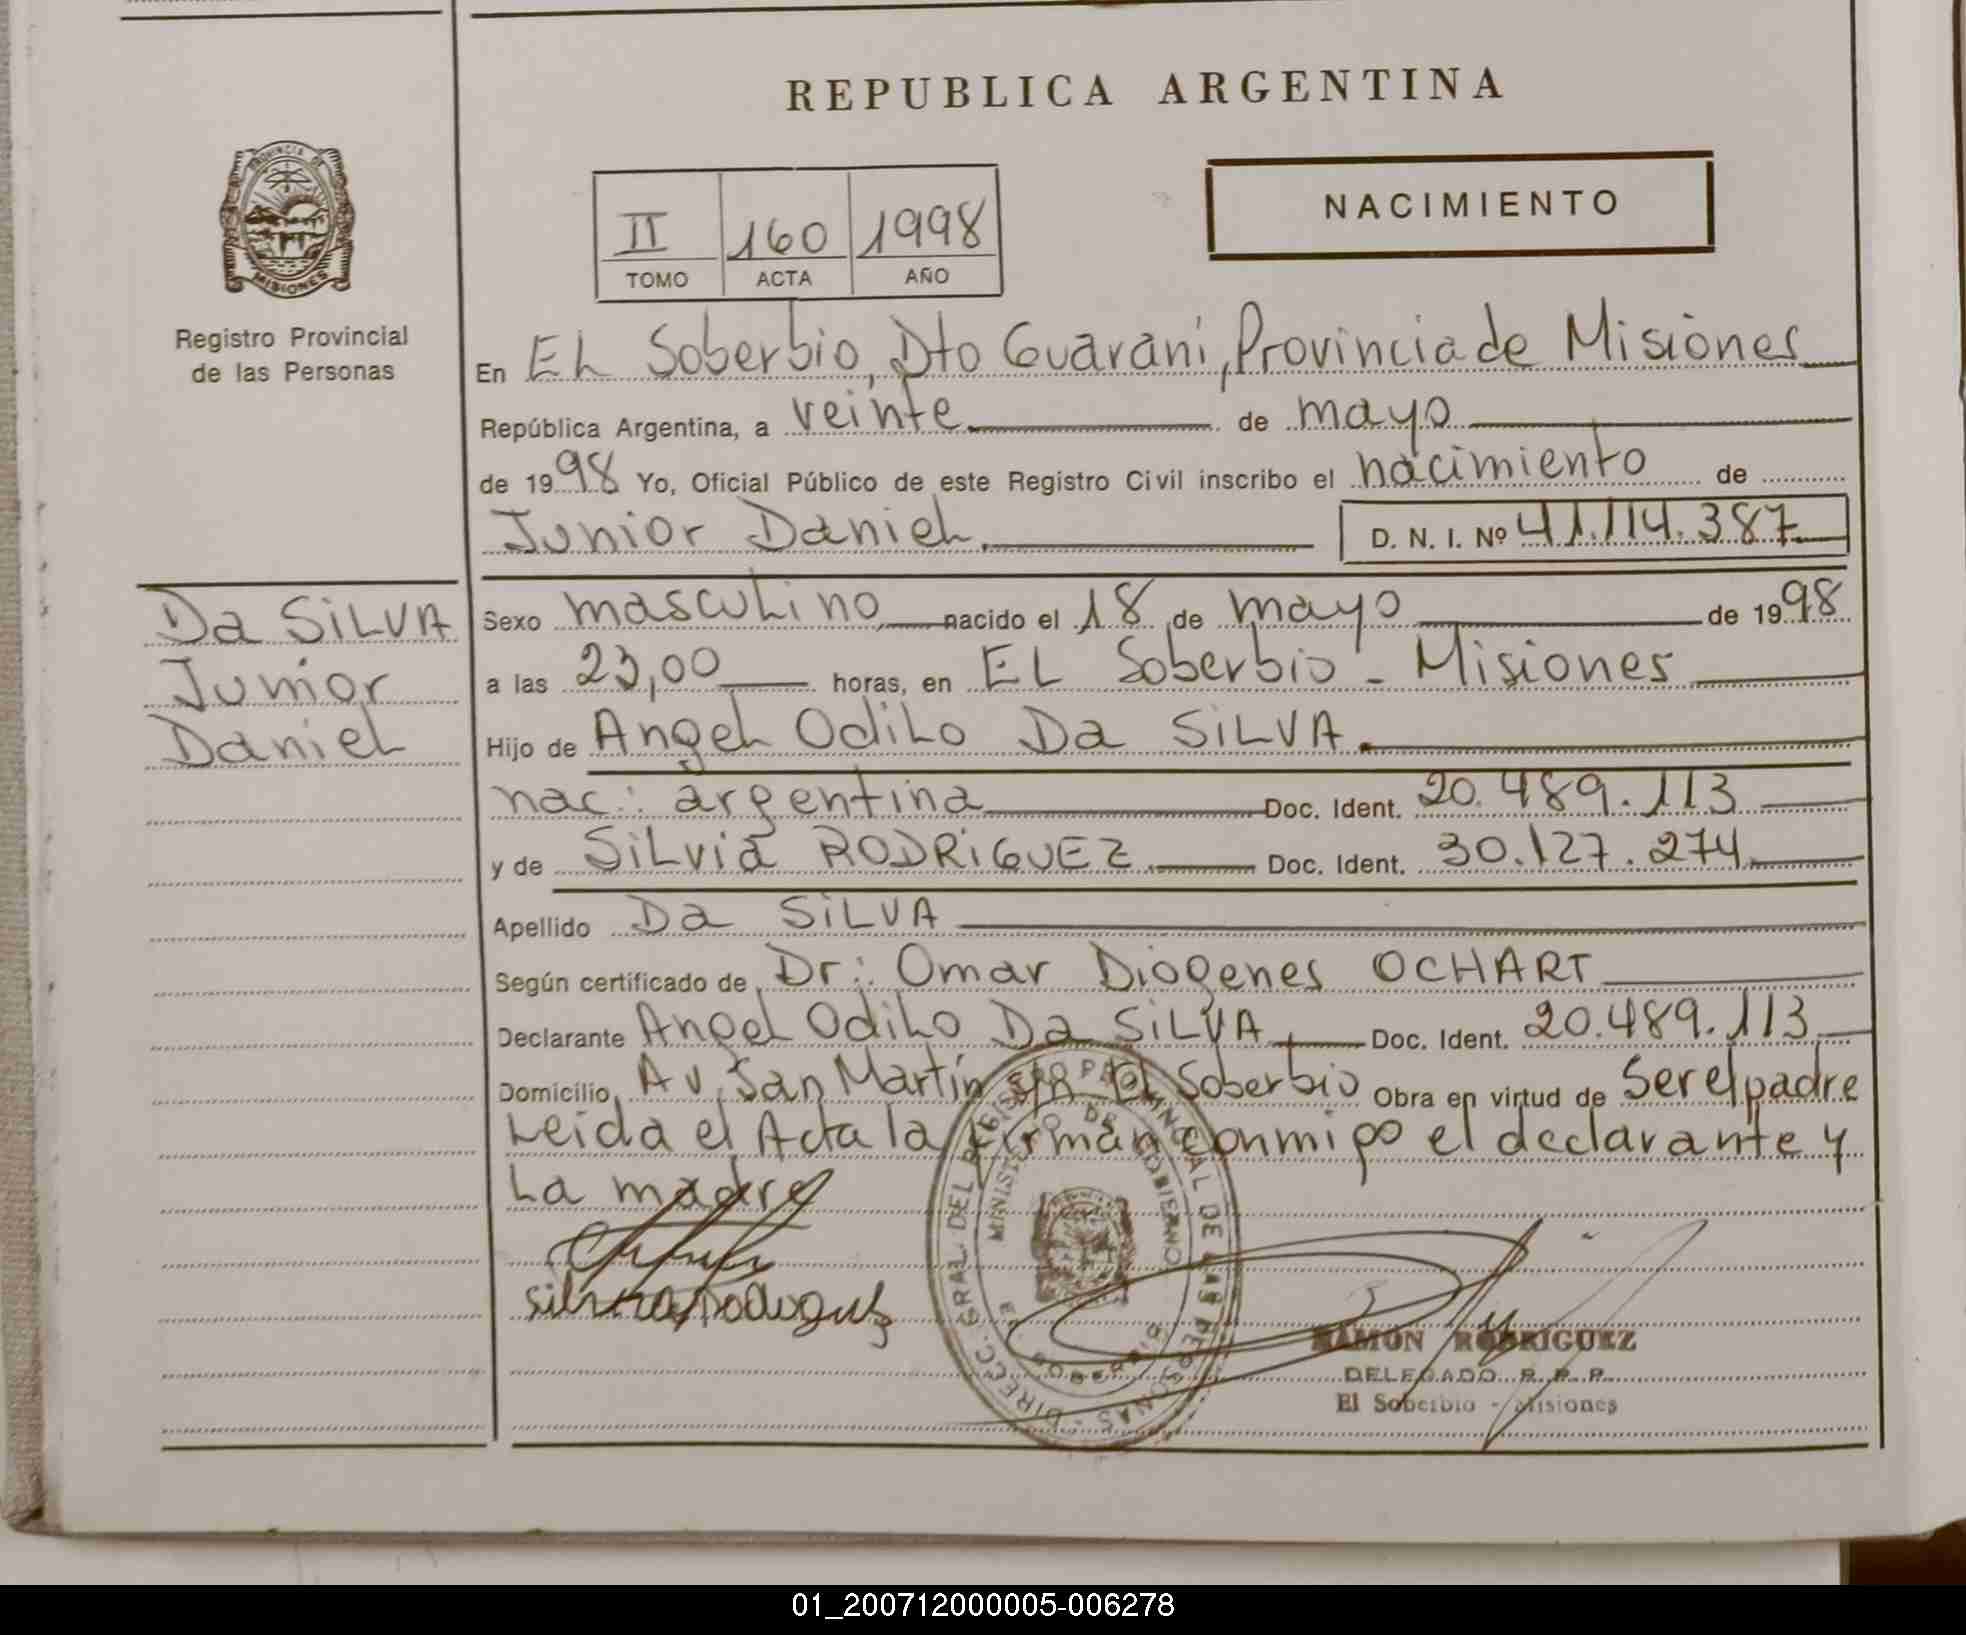 REPUBLICA ARGENTINA
PROVINCIA DE
MISIONES
Registro Provincial
de las Personas
II 160 1998
TOMO ACTA AÑO
NACIMIENTO
En EL Soberbio, Dto Guarani, Provincia de Misiones
República Argentina, a veinte de mayo
de 1998 Yo, Oficial Público de este Registro Civil inscribo el nacimiento de
Junior Daniel. D. N. I. Nº 41.114.387
Da SiLVA
Junior
Daniel
Sexo masculino nacido el 18 de mayo de 1998
a las 23,00 horas, en EL Soberbio - Misiones
Hijo de Angel Odilo Da SiLVA.
nac.: argentina Doc. Ident. 20.489.113
y de SiLvia RODRiGUEZ Doc. Ident. 30.127.274
Apellido Da SiLVA
Según certificado de Dr.: Omar Diogenes OCHART
Declarante Angel Odilo Da SiLVA Doc. Ident. 20.489.113
Domicilio Av. San Martín s/n El Soberbio Obra en virtud de Ser el padre
Leida el Acta la firman conmigo el declarante y
La madre
Silvia Rodriguez
DIRECC. GRAL. DEL REGISTRO PROVINCIAL DE LAS PERSONAS
MINISTERIO DE GOBIERNO
RAMON RODRIGUEZ
DELEGADO R. P. P.
El Soberbio - Misiones
01_200712000005-006278